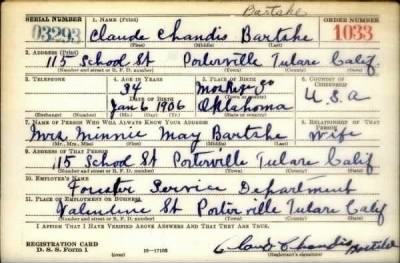 Bartshe
SERIAL NUMBER 1. NAME (Print) ORDER NUMBER
03293 Claude Chandis Bartshe 1033
(First) (Middle) (Last)
2. ADDRESS (Print)
115 School St Porterville Tulare Calif
(Number and street or R. F. D. number) (Town) (County) (State)
3. TELEPHONE 4. AGE IN YEARS 5. PLACE OF BIRTH 6. COUNTRY OF CITIZENSHIP
34
DATE OF BIRTH
Jan 6 1906 Oklahoma U.S.A
7. NAME OF PERSON WHO WILL ALWAYS KNOW YOUR ADDRESS 8. RELATIONSHIP OF THAT PERSON
Mrs. Minnie May Bartshe Wife
(Mr., Mrs., Miss) (First) (Middle) (Last)
9. ADDRESS OF THAT PERSON
115 School St Porterville Tulare Calif
(Number and street or R. F. D. number) (Town) (County) (State)
10. EMPLOYER'S NAME
Forester Service Department
11. PLACE OF EMPLOYMENT OR BUSINESS
Valentine St Porterville Tulare Calif
(Number and street or R. F. D. number) (Town) (County) (State)
I AFFIRM THAT I HAVE VERIFIED ABOVE ANSWERS AND THAT THEY ARE TRUE.
REGISTRATION CARD
D. S. S. Form 1 (over) Claud Chandis Bartshe
(Registrant's signature)